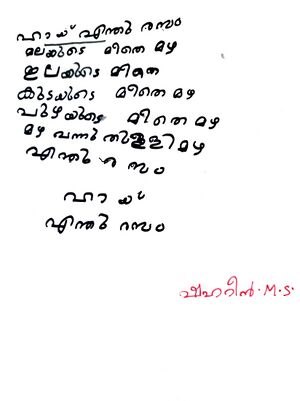 ഹായ് എന്തു രസം
മലയുടെ മീതെ മഴ
ഇലയുടെ മീതെ
കുടയുടെ മീതെ മഴ
പുഴയുടെ മീതെ മഴ
മഴ വന്നു തുള്ളിമഴ
എന്തു രസം
ഹായ്
എന്തു രസം
ഷഹറിൻ.M.S.